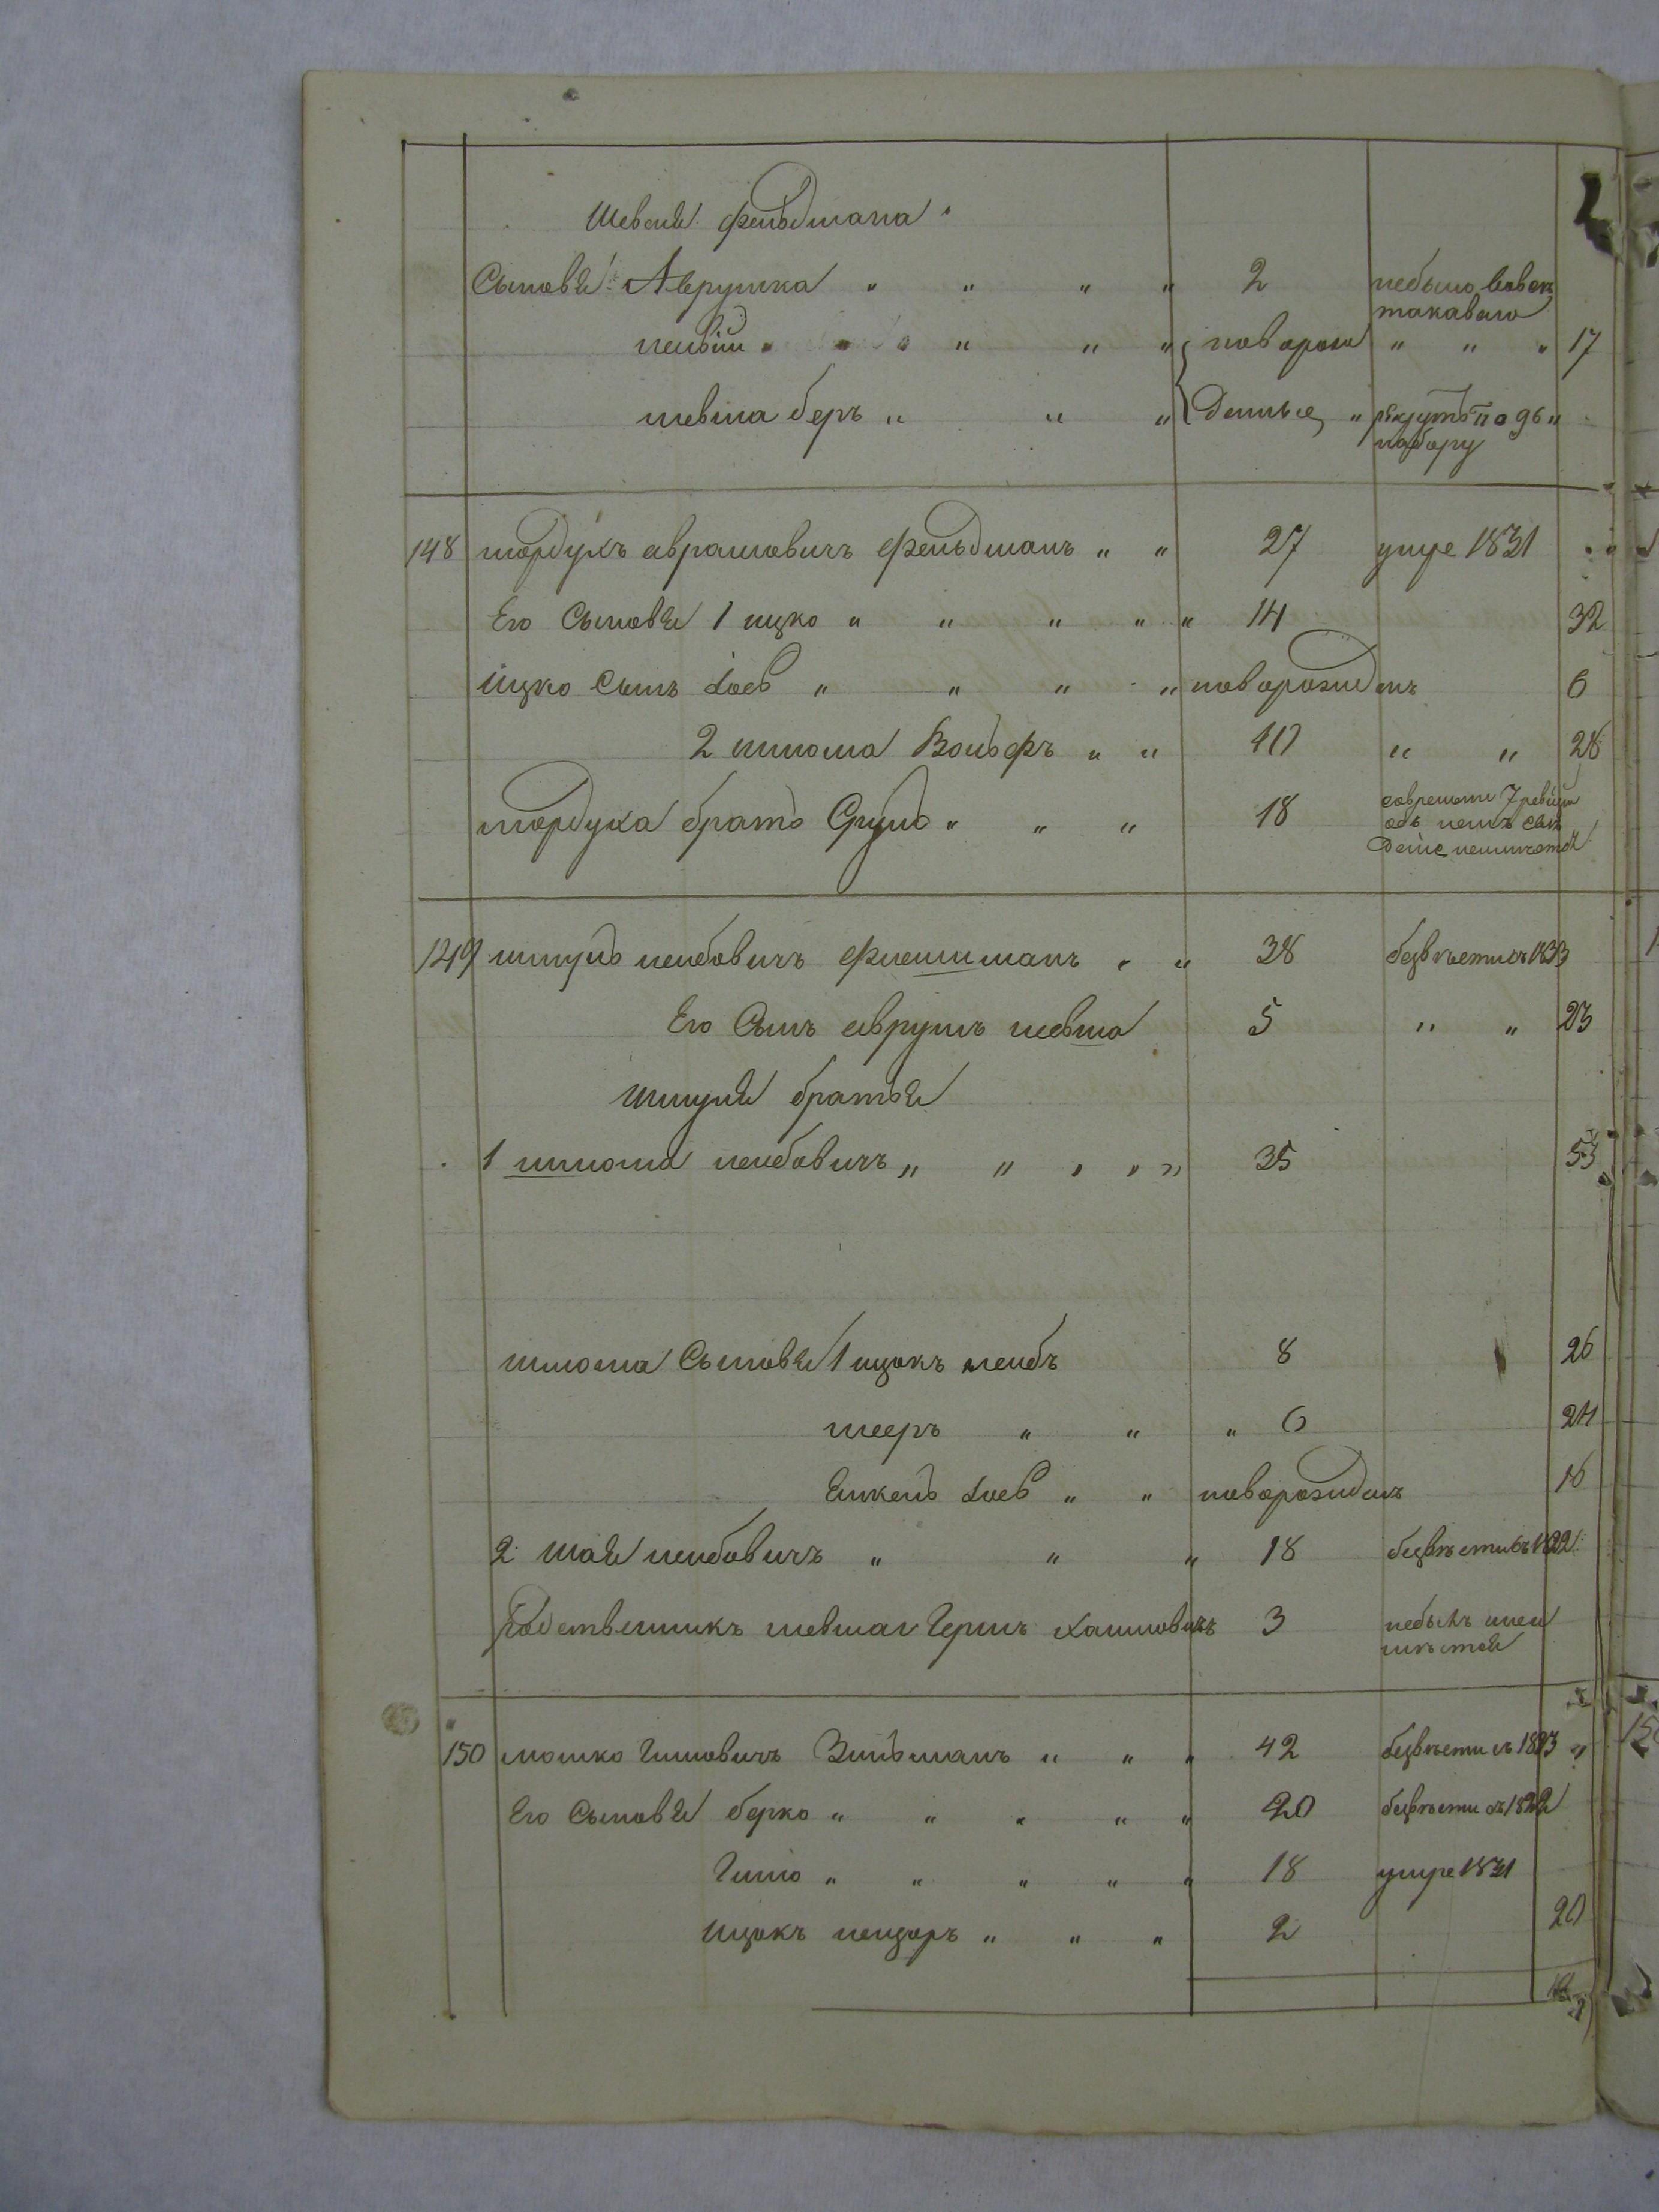 Шевеля фельдмана
Сыновья Аврумка " " " " 2 небыло вовсе
такаваго
" " " новорож " " " 17
мевша беръ " " " денные " рекрутъ по
набору
148 мордухъ аврамовичъ фельдманъ " " 27 умре 1831
Его Сыновья 1 ицко " " " " " 14 32
Ицко Сынъ Лоеб " " " " новорожденъ 6
2 шлома Вольфъ " " 10 " " 28
мордуха братъ Сруль " " " 18 современи 7 ревизии
объ немъ свѣ
дение неимется
149 шмуль лейбовичъ флешманъ " " 38 безвѣсти съ 1833
Его Сынъ аврумъ мевша 5 " " 23
Шмуля братья
1 шлома лейбовичъ " " " " " 35 53
шлома Сыновья 1 ицокъ лейбъ 8 26
мееръ " " " 6 24
Янкель Лоеб " " новорожденъ 16
2 шая лейбовичъ " " " 18 безвѣсти съ 1822
Родственникъ мевша Гершъ хаимовичъ 3
150 мошко Гилловичъ Зильманъ " " " 42 безвѣсти съ 1823 "
Его Сыновья берко " " " " " 20 безвѣсти съ 1822
Гилло " " " " " 18 умре 1831
Ицокъ лейзоръ " " " 2 20